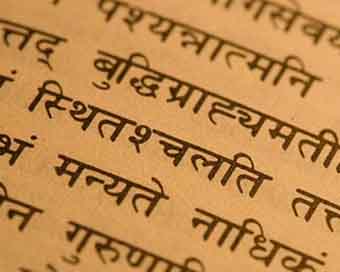 पश्यन्नात्मनि
बुद्धिग्राह्यमती
स्थितश्चलति तत्त
मन्यते नाधिकं
गुरुणा